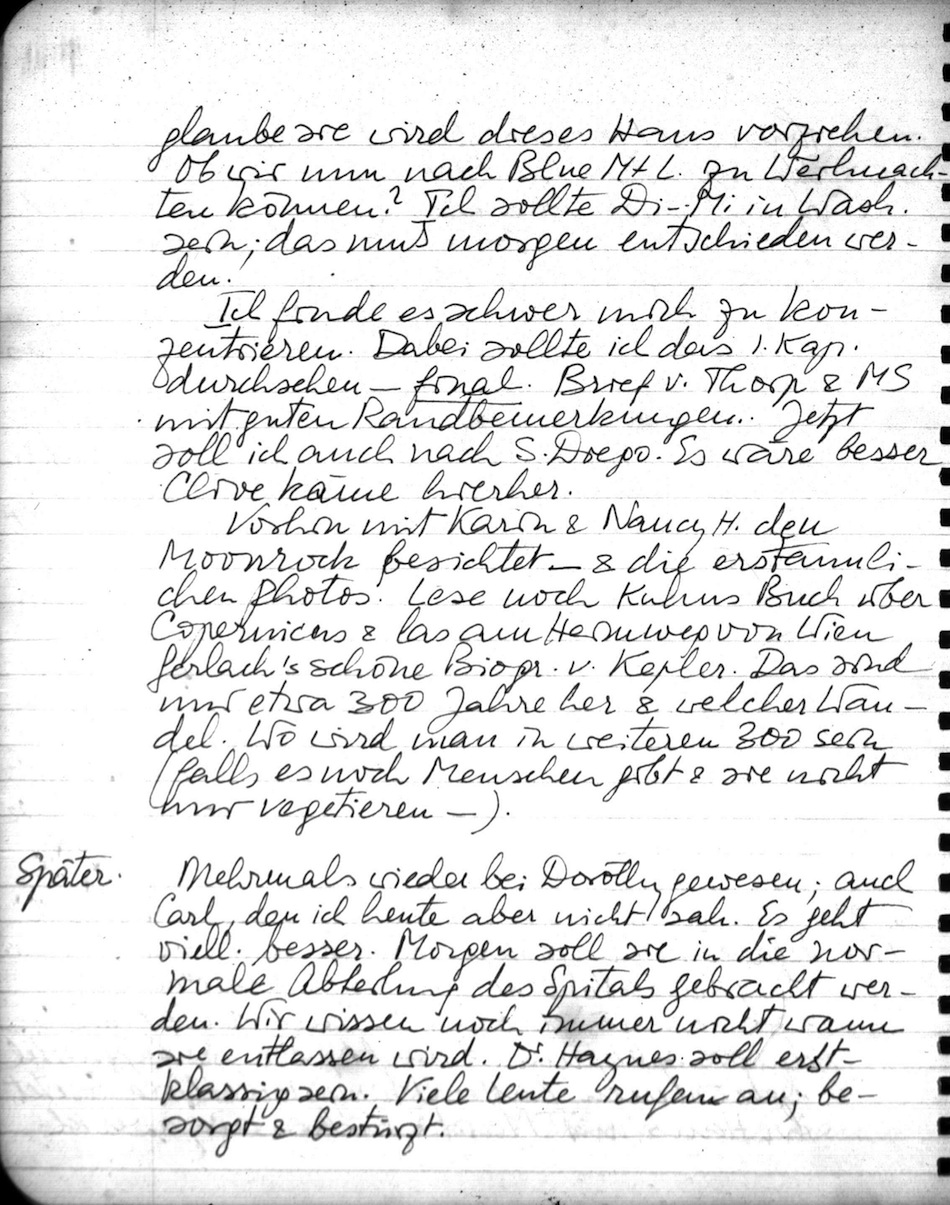 glaube sie wird dieses Haus vorziehen.
Ob wir nun nach Blue Mt L. zu Weihnach-
ten können? Ich sollte Di-Mi in Wash.
sein; das muß morgen entschieden wer-
den.
Ich finde es schwer mich zu kon-
zentrieren. Dabei sollte ich das 1. Kap.
durchsehen — final. Brief v. Thorp & MS
mit guten Randbemerkungen. Jetzt
soll ich auch nach S. Diego. Es wäre besser
Clive käme hierher.
Vorhin mit Karin & Nancy H. den
Moonrock besichtet — & die erstaunli-
chen Photos! Lese noch Kuhns Buch über
Copernicus & las am Heimweg von Wien
Gerlach's schöne Biogr. v. Kepler. Das sind
nur etwa 300 Jahre her & welcher Wan-
del. Wo wird man in weiteren 300 sein
(falls es noch Menschen gibt & sie nicht
nur vegetieren —).
Später. Mehrmals wieder bei Dorothy gewesen; auch
Carl, den ich heute aber nicht sah. Es geht
viell. besser. Morgen soll sie in die nor-
male Abteilung des Spitals gebracht wer-
den. Wir wissen noch immer nicht wann
sie entlassen wird. Dr. Haynes soll erst-
klassig sein. Viele Leute rufen an; be-
sorgt & bestürzt.